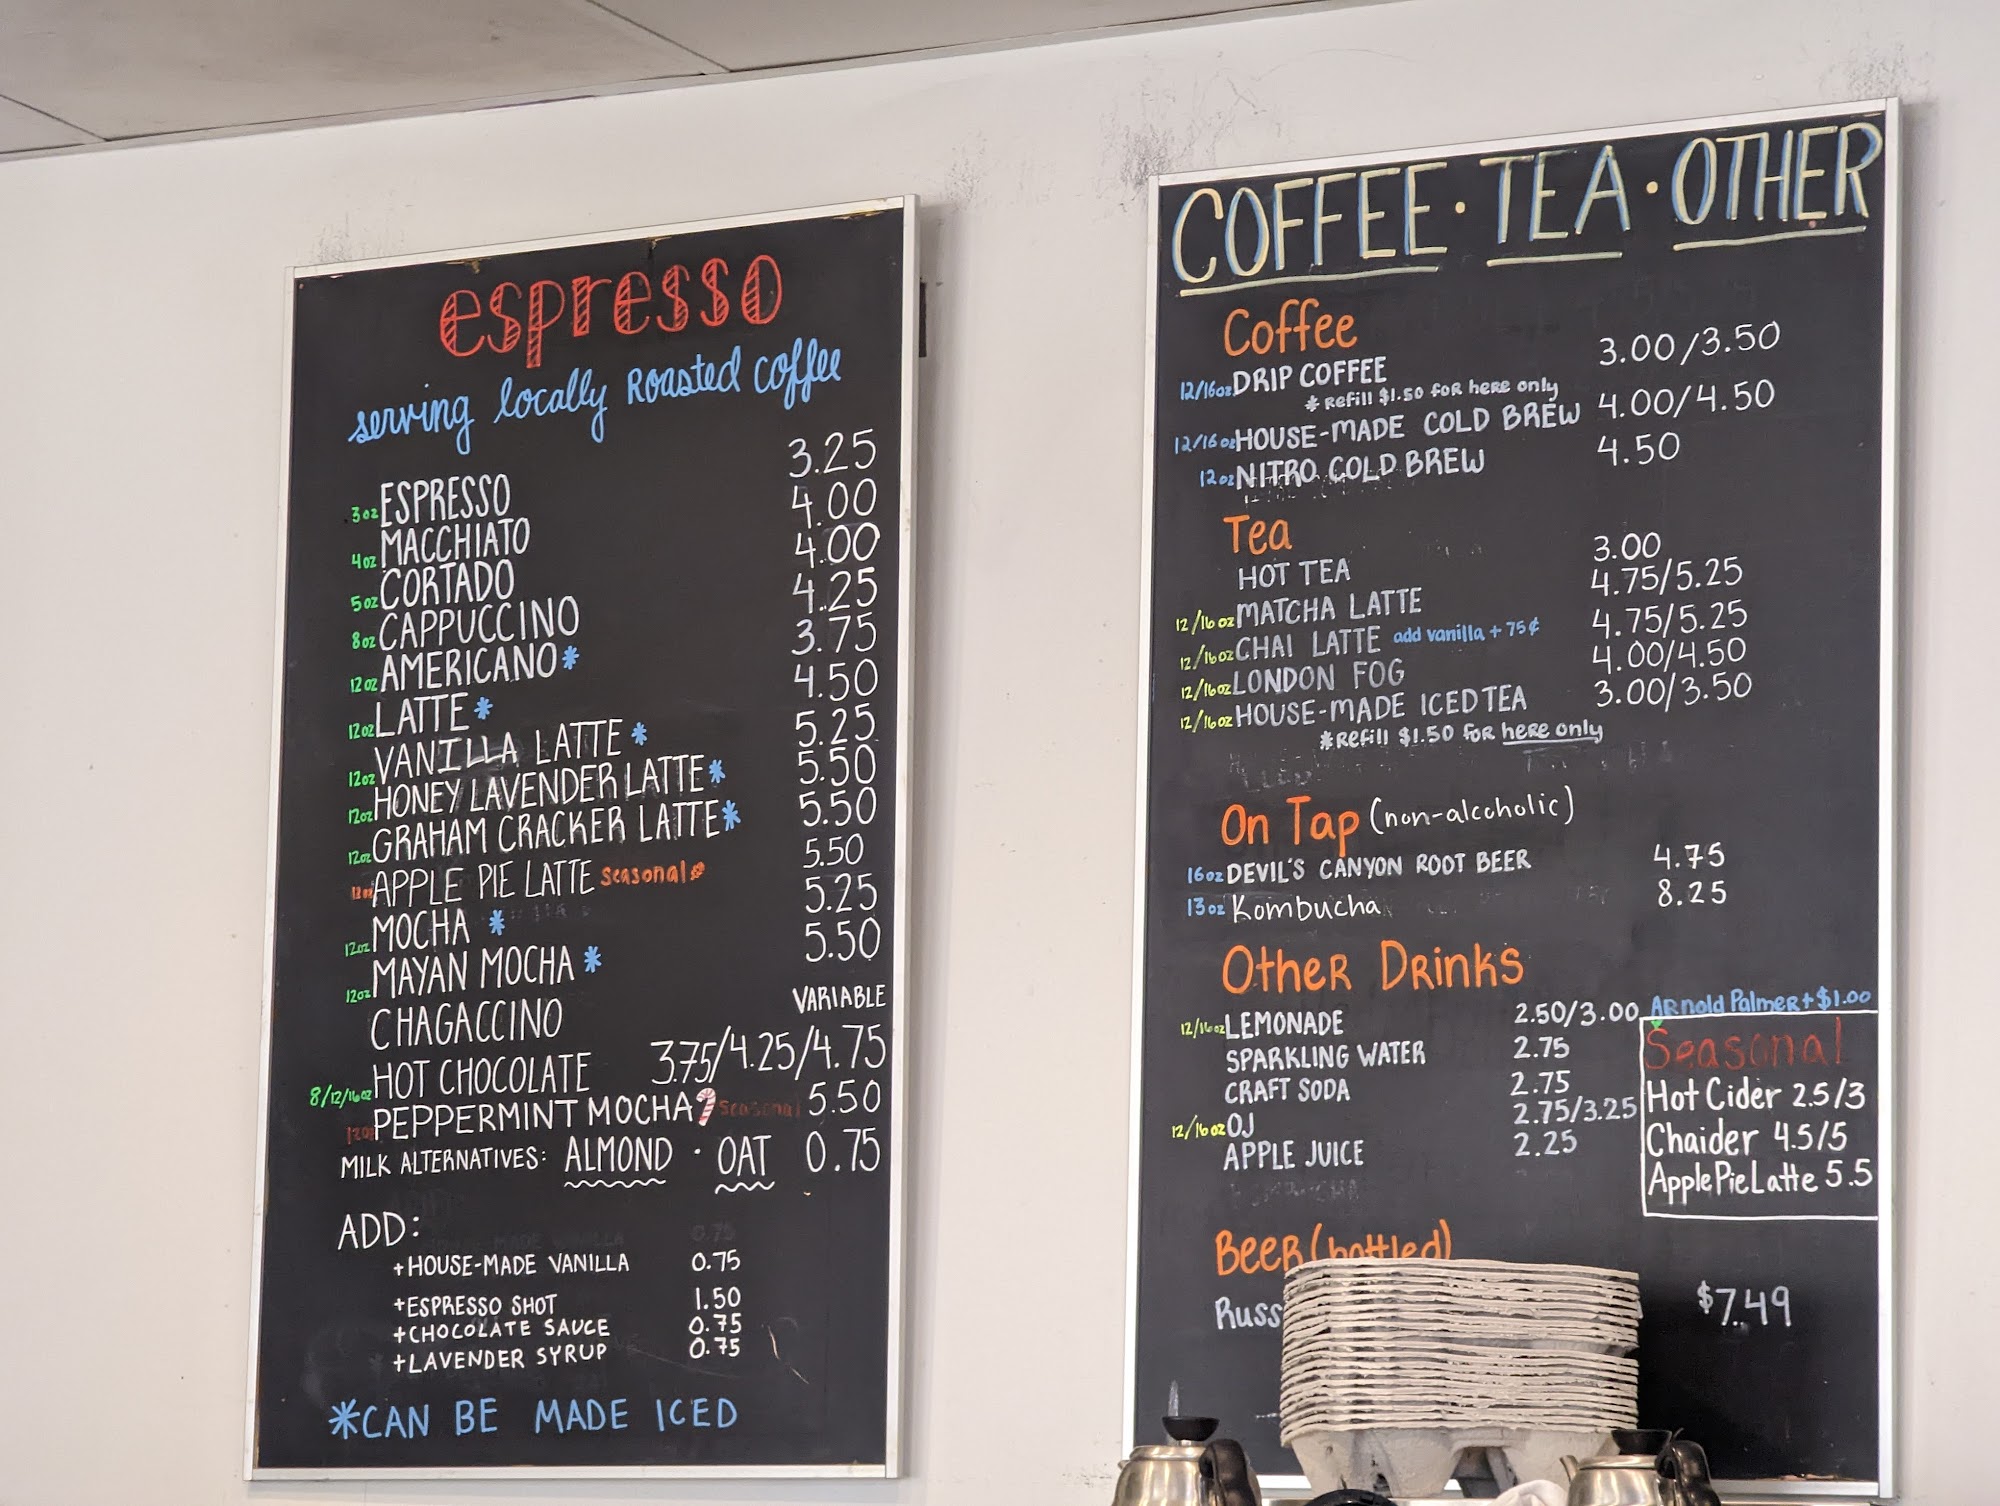 espresso
serving locally Roasted coffee
3oz ESPRESSO 3.25
4oz MACCHIATO 4.00
5oz CORTADO 4.00
8oz CAPPUCCINO 4.25
12oz AMERICANO* 3.75
12oz LATTE* 4.50
12oz VANILLA LATTE* 5.25
12oz HONEY LAVENDER LATTE* 5.50
12oz GRAHAM CRACKER LATTE* 5.50
12oz APPLE PIE LATTE seasonal 5.50
12oz MOCHA* 5.25
12oz MAYAN MOCHA* 5.50
CHAGACCINO VARIABLE
8/12/16oz HOT CHOCOLATE 3.75/4.25/4.75
12oz PEPPERMINT MOCHA seasonal 5.50
MILK ALTERNATIVES: ALMOND · OAT 0.75
ADD:
+HOUSE-MADE VANILLA 0.75
+ESPRESSO SHOT 1.50
+CHOCOLATE SAUCE 0.75
+LAVENDER SYRUP 0.75
*CAN BE MADE ICED
COFFEE · TEA · OTHER
Coffee
12/16oz DRIP COFFEE 3.00/3.50
*Refill $1.50 for here only
12/16oz HOUSE-MADE COLD BREW 4.00/4.50
12oz NITRO COLD BREW 4.50
Tea
HOT TEA 3.00
12/16oz MATCHA LATTE 4.75/5.25
12/16oz CHAI LATTE add vanilla + 75¢ 4.75/5.25
12/16oz LONDON FOG 4.00/4.50
12/16oz HOUSE-MADE ICED TEA 3.00/3.50
*Refill $1.50 for here only
On Tap (non-alcoholic)
16oz DEVIL'S CANYON ROOT BEER 4.75
13oz Kombucha 8.25
Other Drinks
12/16oz LEMONADE 2.50/3.00 Arnold Palmer + $1.00
SPARKLING WATER 2.75
CRAFT SODA 2.75
12/16oz OJ 2.75/3.25
APPLE JUICE 2.25
Seasonal
Hot Cider 2.5/3
Chaider 4.5/5
Apple Pie Latte 5.5
Beer (bottled)
$7.49